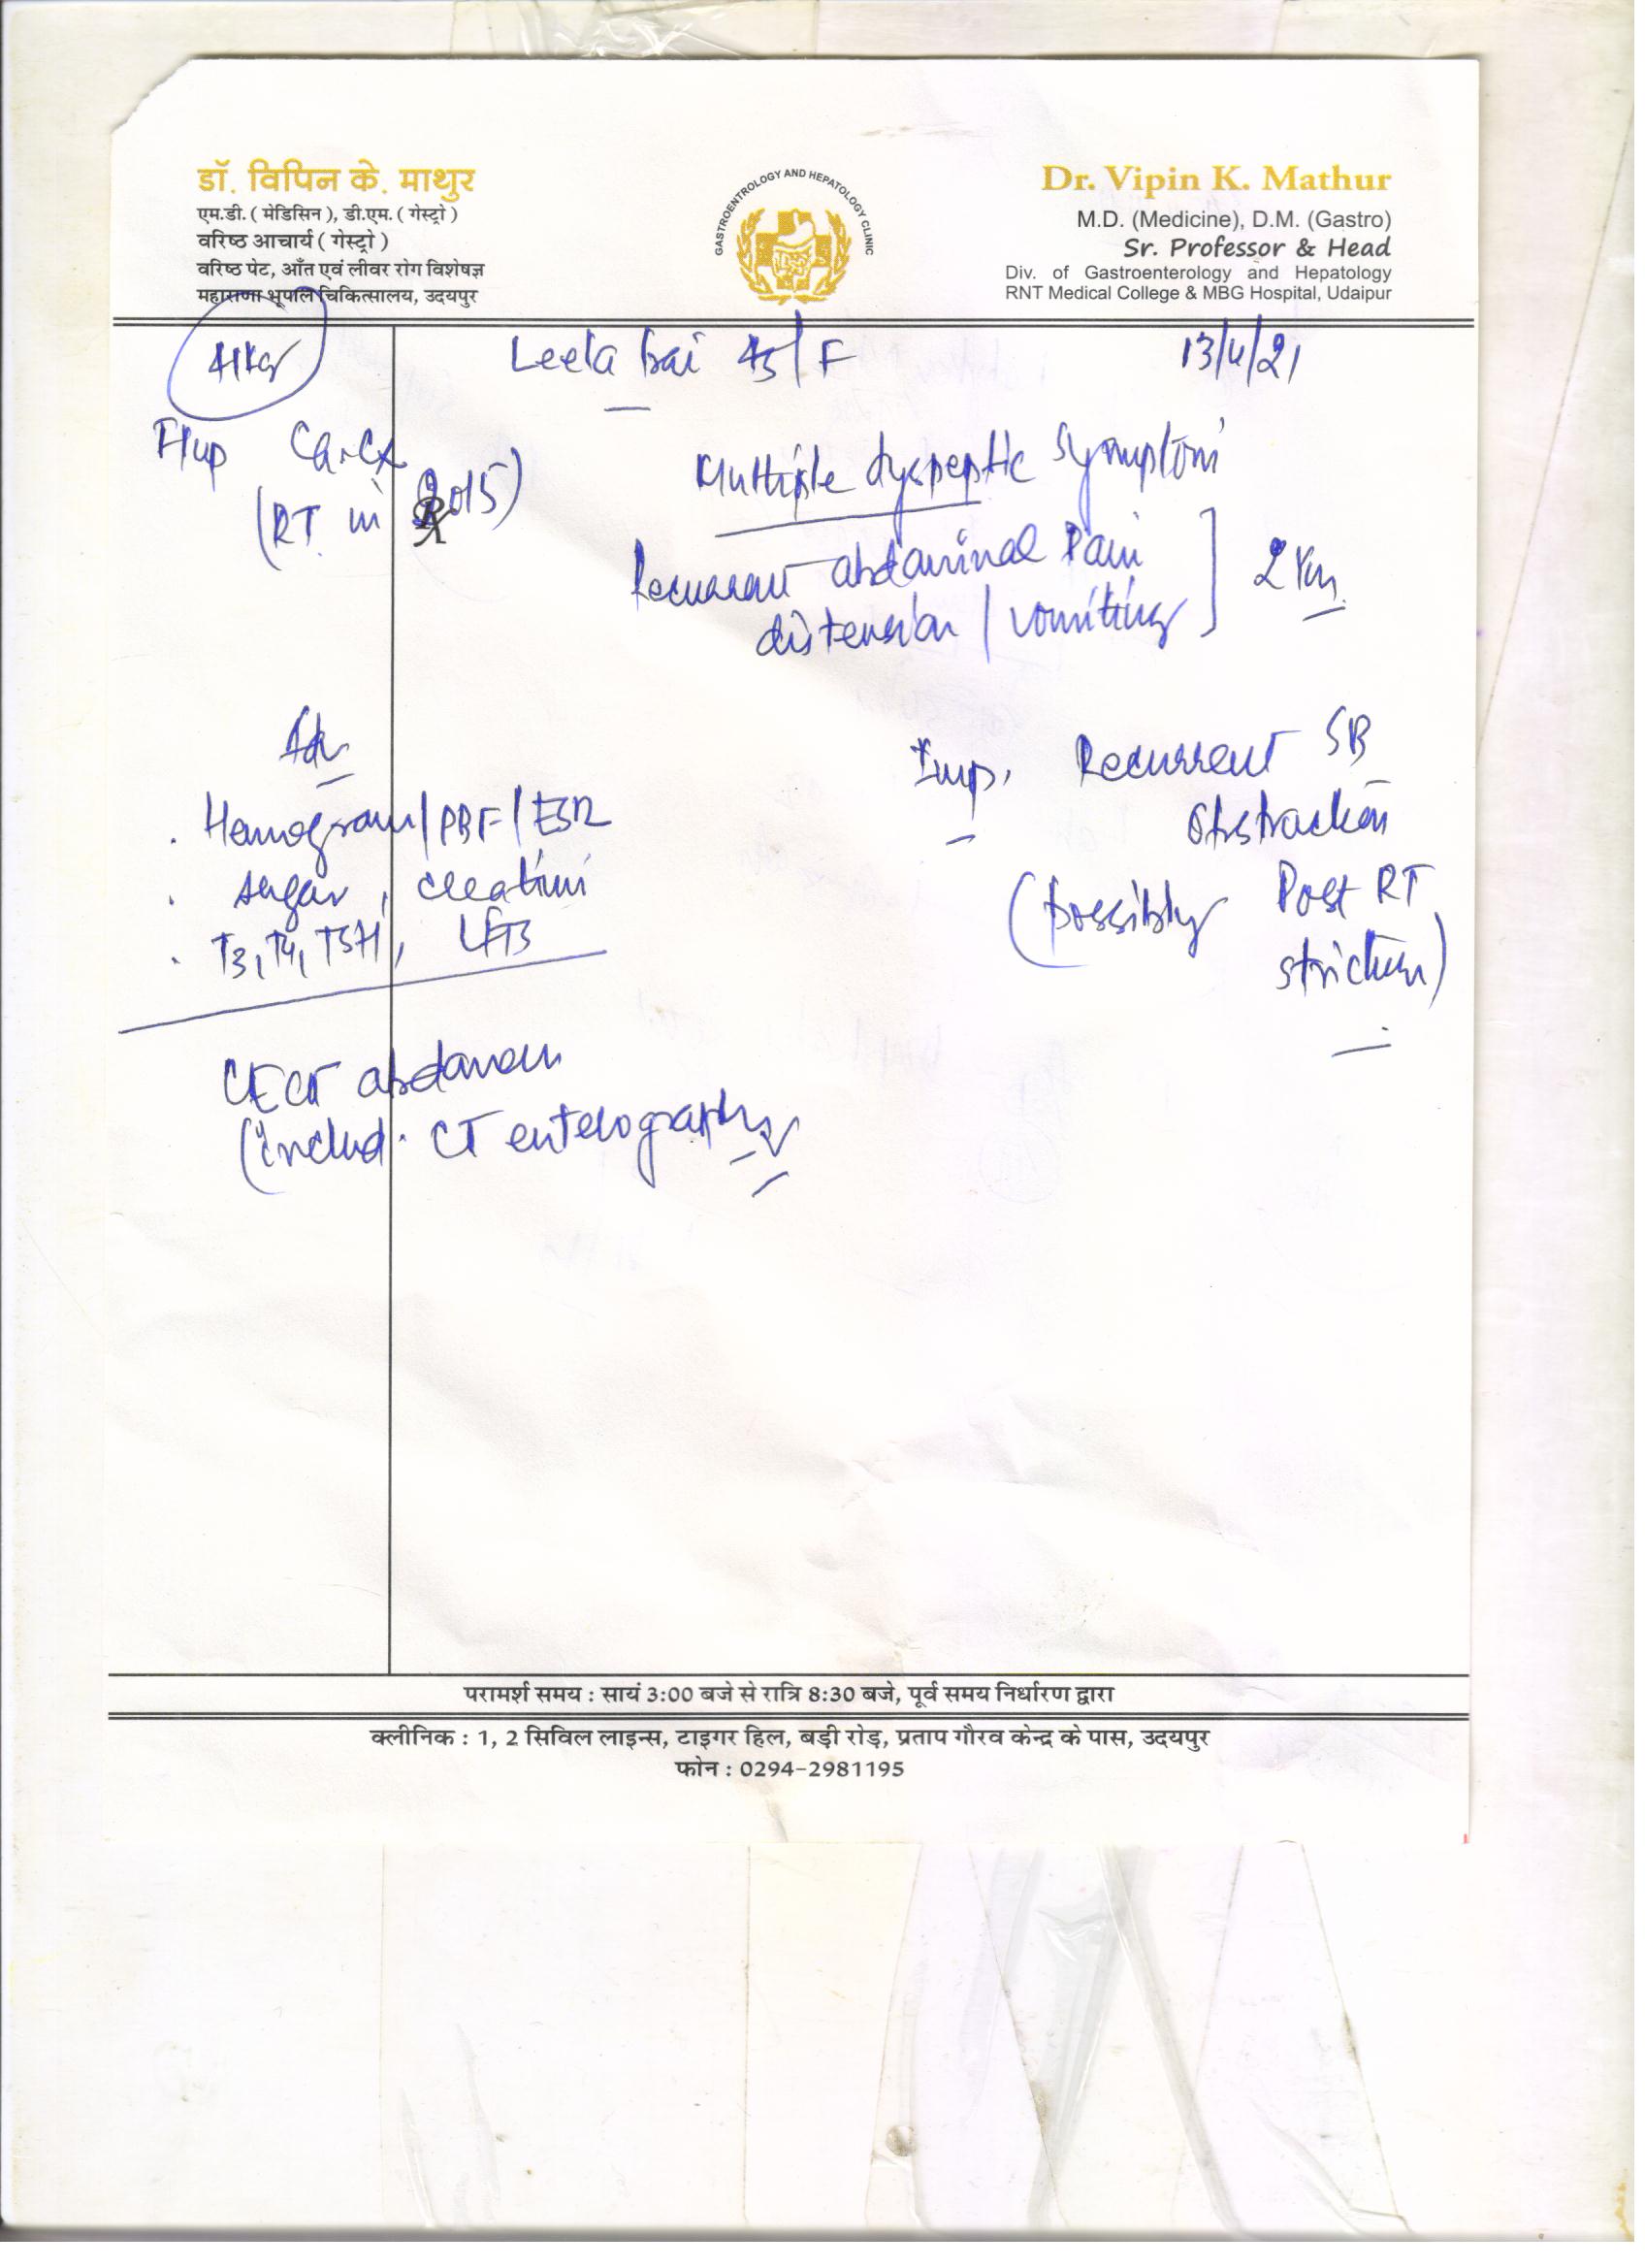 डॉ. विपिन के. माथुर
एम.डी. ( मेडिसिन ), डी.एम. ( गेस्ट्रो )
वरिष्ठ आचार्य ( गेस्ट्रो )
वरिष्ठ पेट, आँत एवं लीवर रोग विशेषज्ञ
महाराणा भूपाल चिकित्सालय, उदयपुर
GASTROENTROLOGY AND HEPATOLOGY CLINIC
Dr. Vipin K. Mathur
M.D. (Medicine), D.M. (Gastro)
Sr. Professor & Head
Div. of Gastroenterology and Hepatology
RNT Medical College & MBG Hospital, Udaipur
41kg
Leela bai 45/F
13/4/21
F/up Ca. Cx
(RT in 2015)
Rx
Multiple dyspeptic symptoms
Recurrent abdominal Pain
distension / vomiting ] 2 Yrs.
Imp. Recurrent SB
obstruction
(possibly Post RT
stricture)
Adv
. Hemogram/PBF/ESR
. sugar, creatinine
. T3, T4, TSH, LFTs
CECT abdomen
(includ. CT enterography)
परामर्श समय : सायं 3:00 बजे से रात्रि 8:30 बजे, पूर्व समय निर्धारण द्वारा
क्लीनिक : 1, 2 सिविल लाइन्स, टाइगर हिल, बड़ी रोड़, प्रताप गौरव केन्द्र के पास, उदयपुर
फोन : 0294-2981195